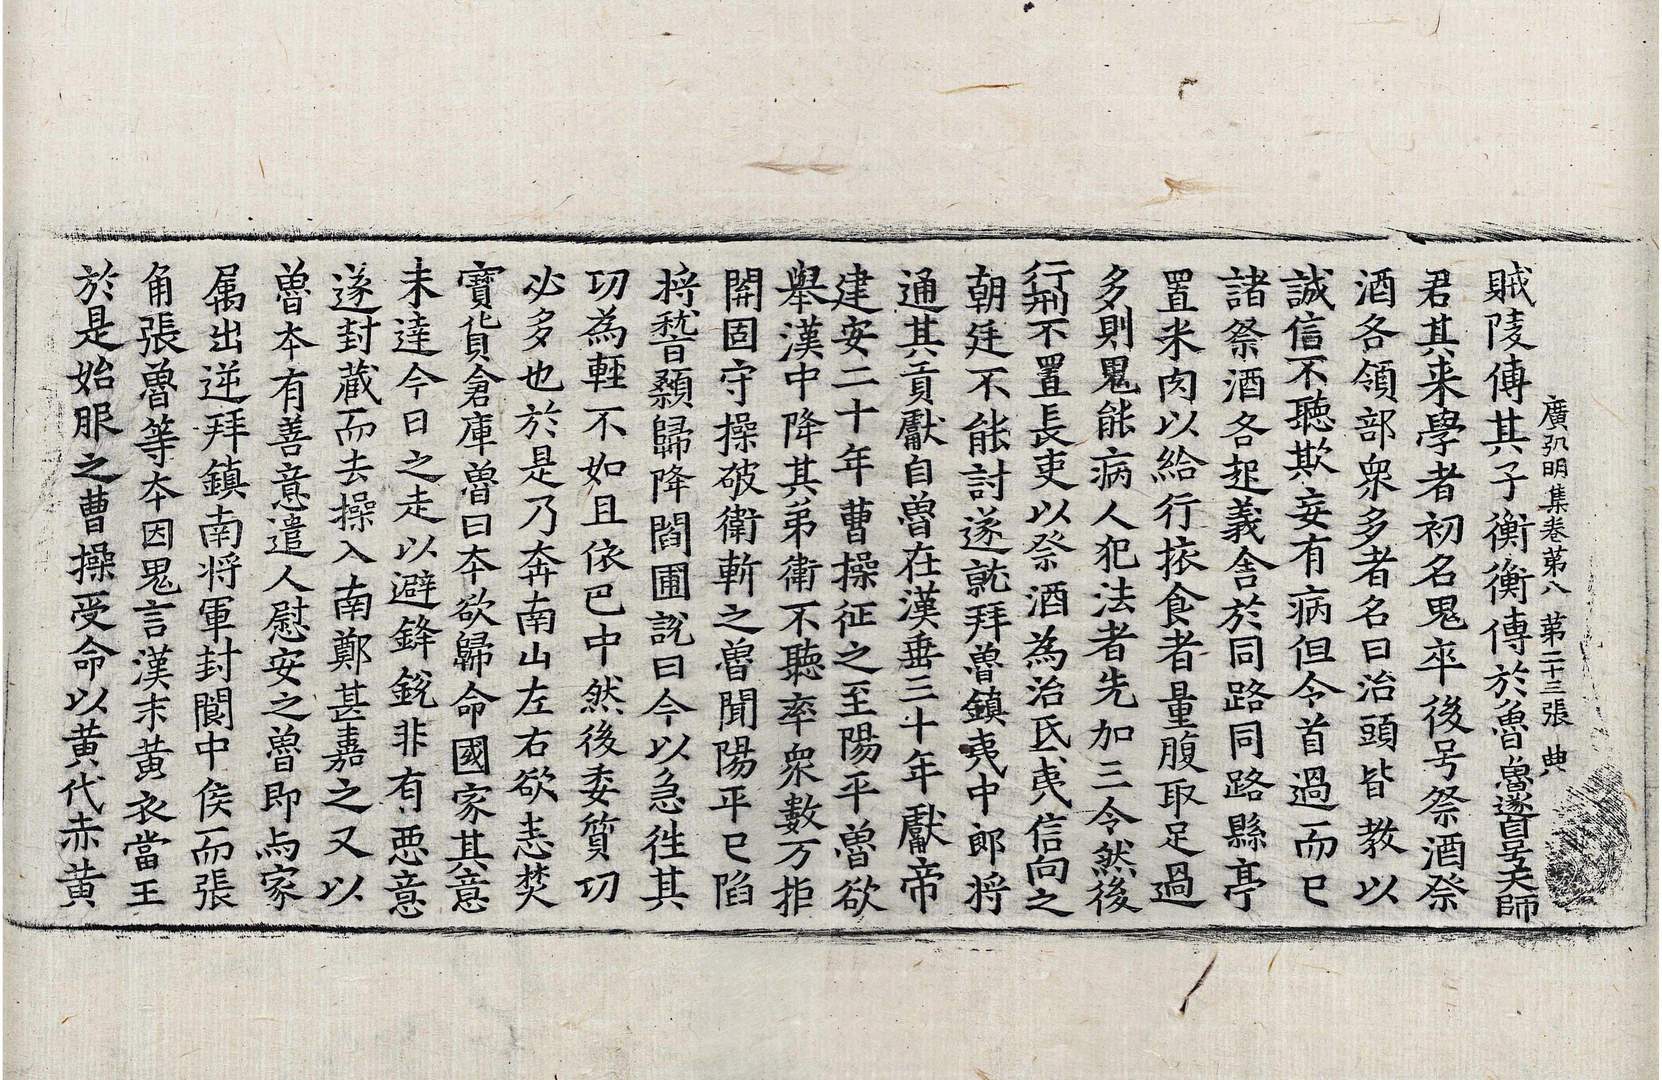 廣弘明集卷第八　第二十三張　典
賊陵傳其子衡衡傳於魯魯遂自号天師
君其来學者初名鬼卒後号祭酒祭
酒各領部衆多者名曰治頭皆教以
誠信不聽欺妄有病但令首過而已
諸祭酒各起義舍於同路同路縣亭
置米肉以給行旅食者量腹取足過
多則鬼能病人犯法者先加三令然後
行刑不置長吏以祭酒為治民夷信向之
朝廷不能討遂就拜魯鎮夷中郎将
通其貢獻自魯在漢垂三十年獻帝
建安二十年曹操征之至陽平魯欲
舉漢中降其弟衛不聽率衆數万拒
關固守操破衛斬之魯聞陽平已陷
将稽顙歸降閻圃説曰今以急往其
功為輕不如且依巴中然後委質功
必多也於是乃奔南山左右欲恚焚
寶貨倉庫魯曰本欲歸命國家其意
未達今日之走以避鋒銳非有惡意
遂封藏而去操入南鄭甚嘉之又以
魯本有善意遣人慰安之魯即与家
属出逆拜鎮南将軍封閬中侯而張
角張魯等本因鬼言漢末黄衣當王
於是始服之曹操受命以黄代赤黄